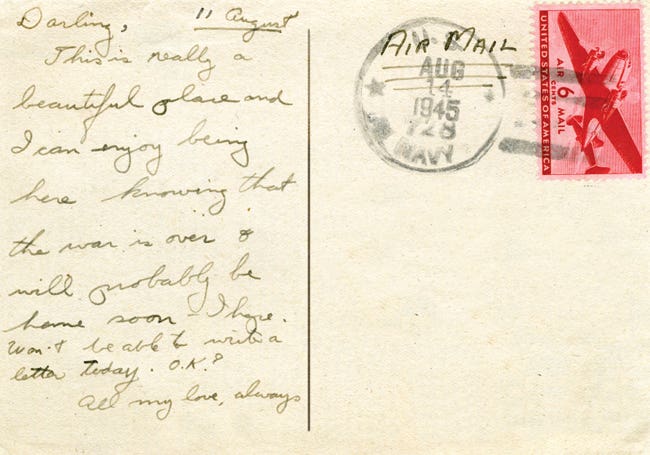 Darling, 11 August
This is really a
beautiful place and
I can enjoy being
here knowing that
the war is over &
will probably be
home soon - I hope.
Won't be able to write a
letter today. O.K.?
All my love, always
AIR MAIL
U.S.
AUG
14
1945
728
NAVY
UNITED STATES OF AMERICA
AIR 6 CENTS MAIL